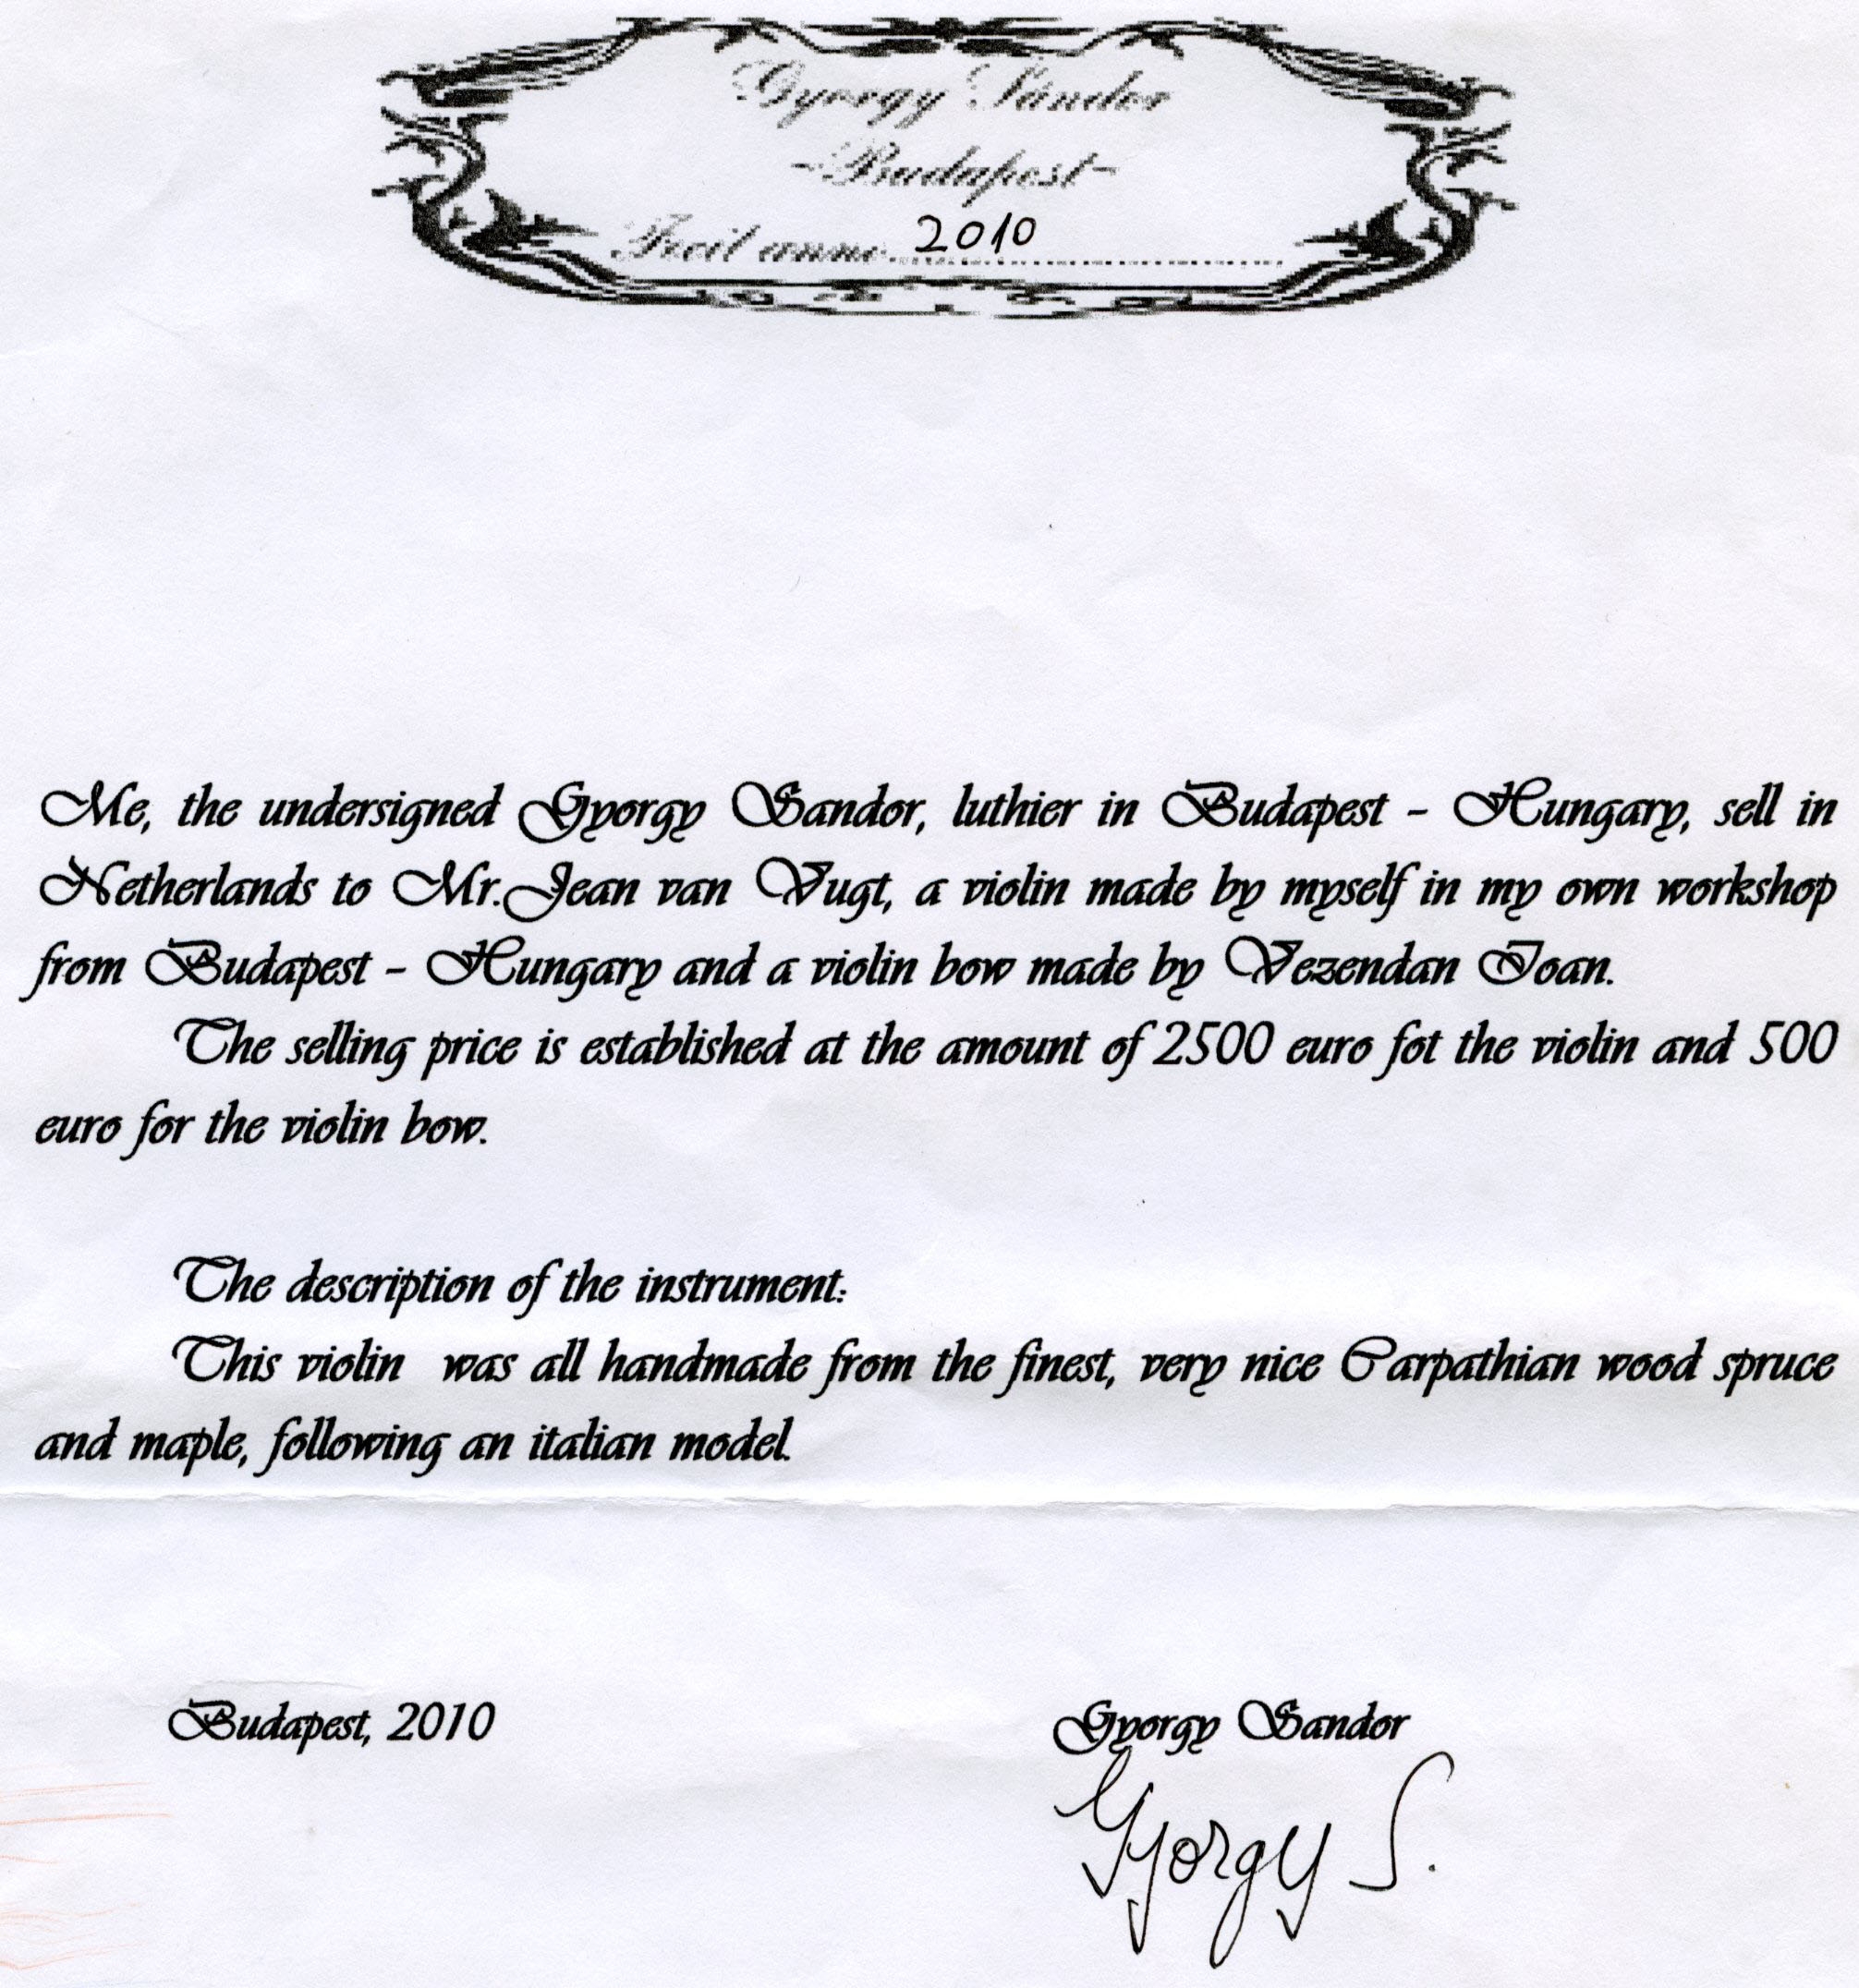 Gyorgy Sándor
-Budapest-
Fecit anno 2010
Me, the undersigned Gyorgy Sandor, luthier in Budapest - Hungary, sell in
Netherlands to Mr.Jean van Vugt, a violin made by myself in my own workshop
from Budapest - Hungary and a violin bow made by Vezendan Ioan.
The selling price is established at the amount of 2500 euro fot the violin and 500
euro for the violin bow.
The description of the instrument:
This violin was all handmade from the finest, very nice Carpathian wood spruce
and maple, following an italian model.
Budapest, 2010
Gyorgy Sandor
Gyorgy S.